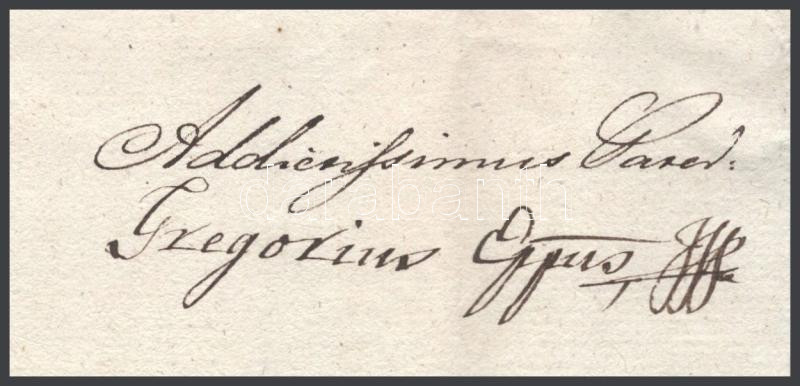 Addictissimus Sacer:
Gregorius Eppus
darabanth